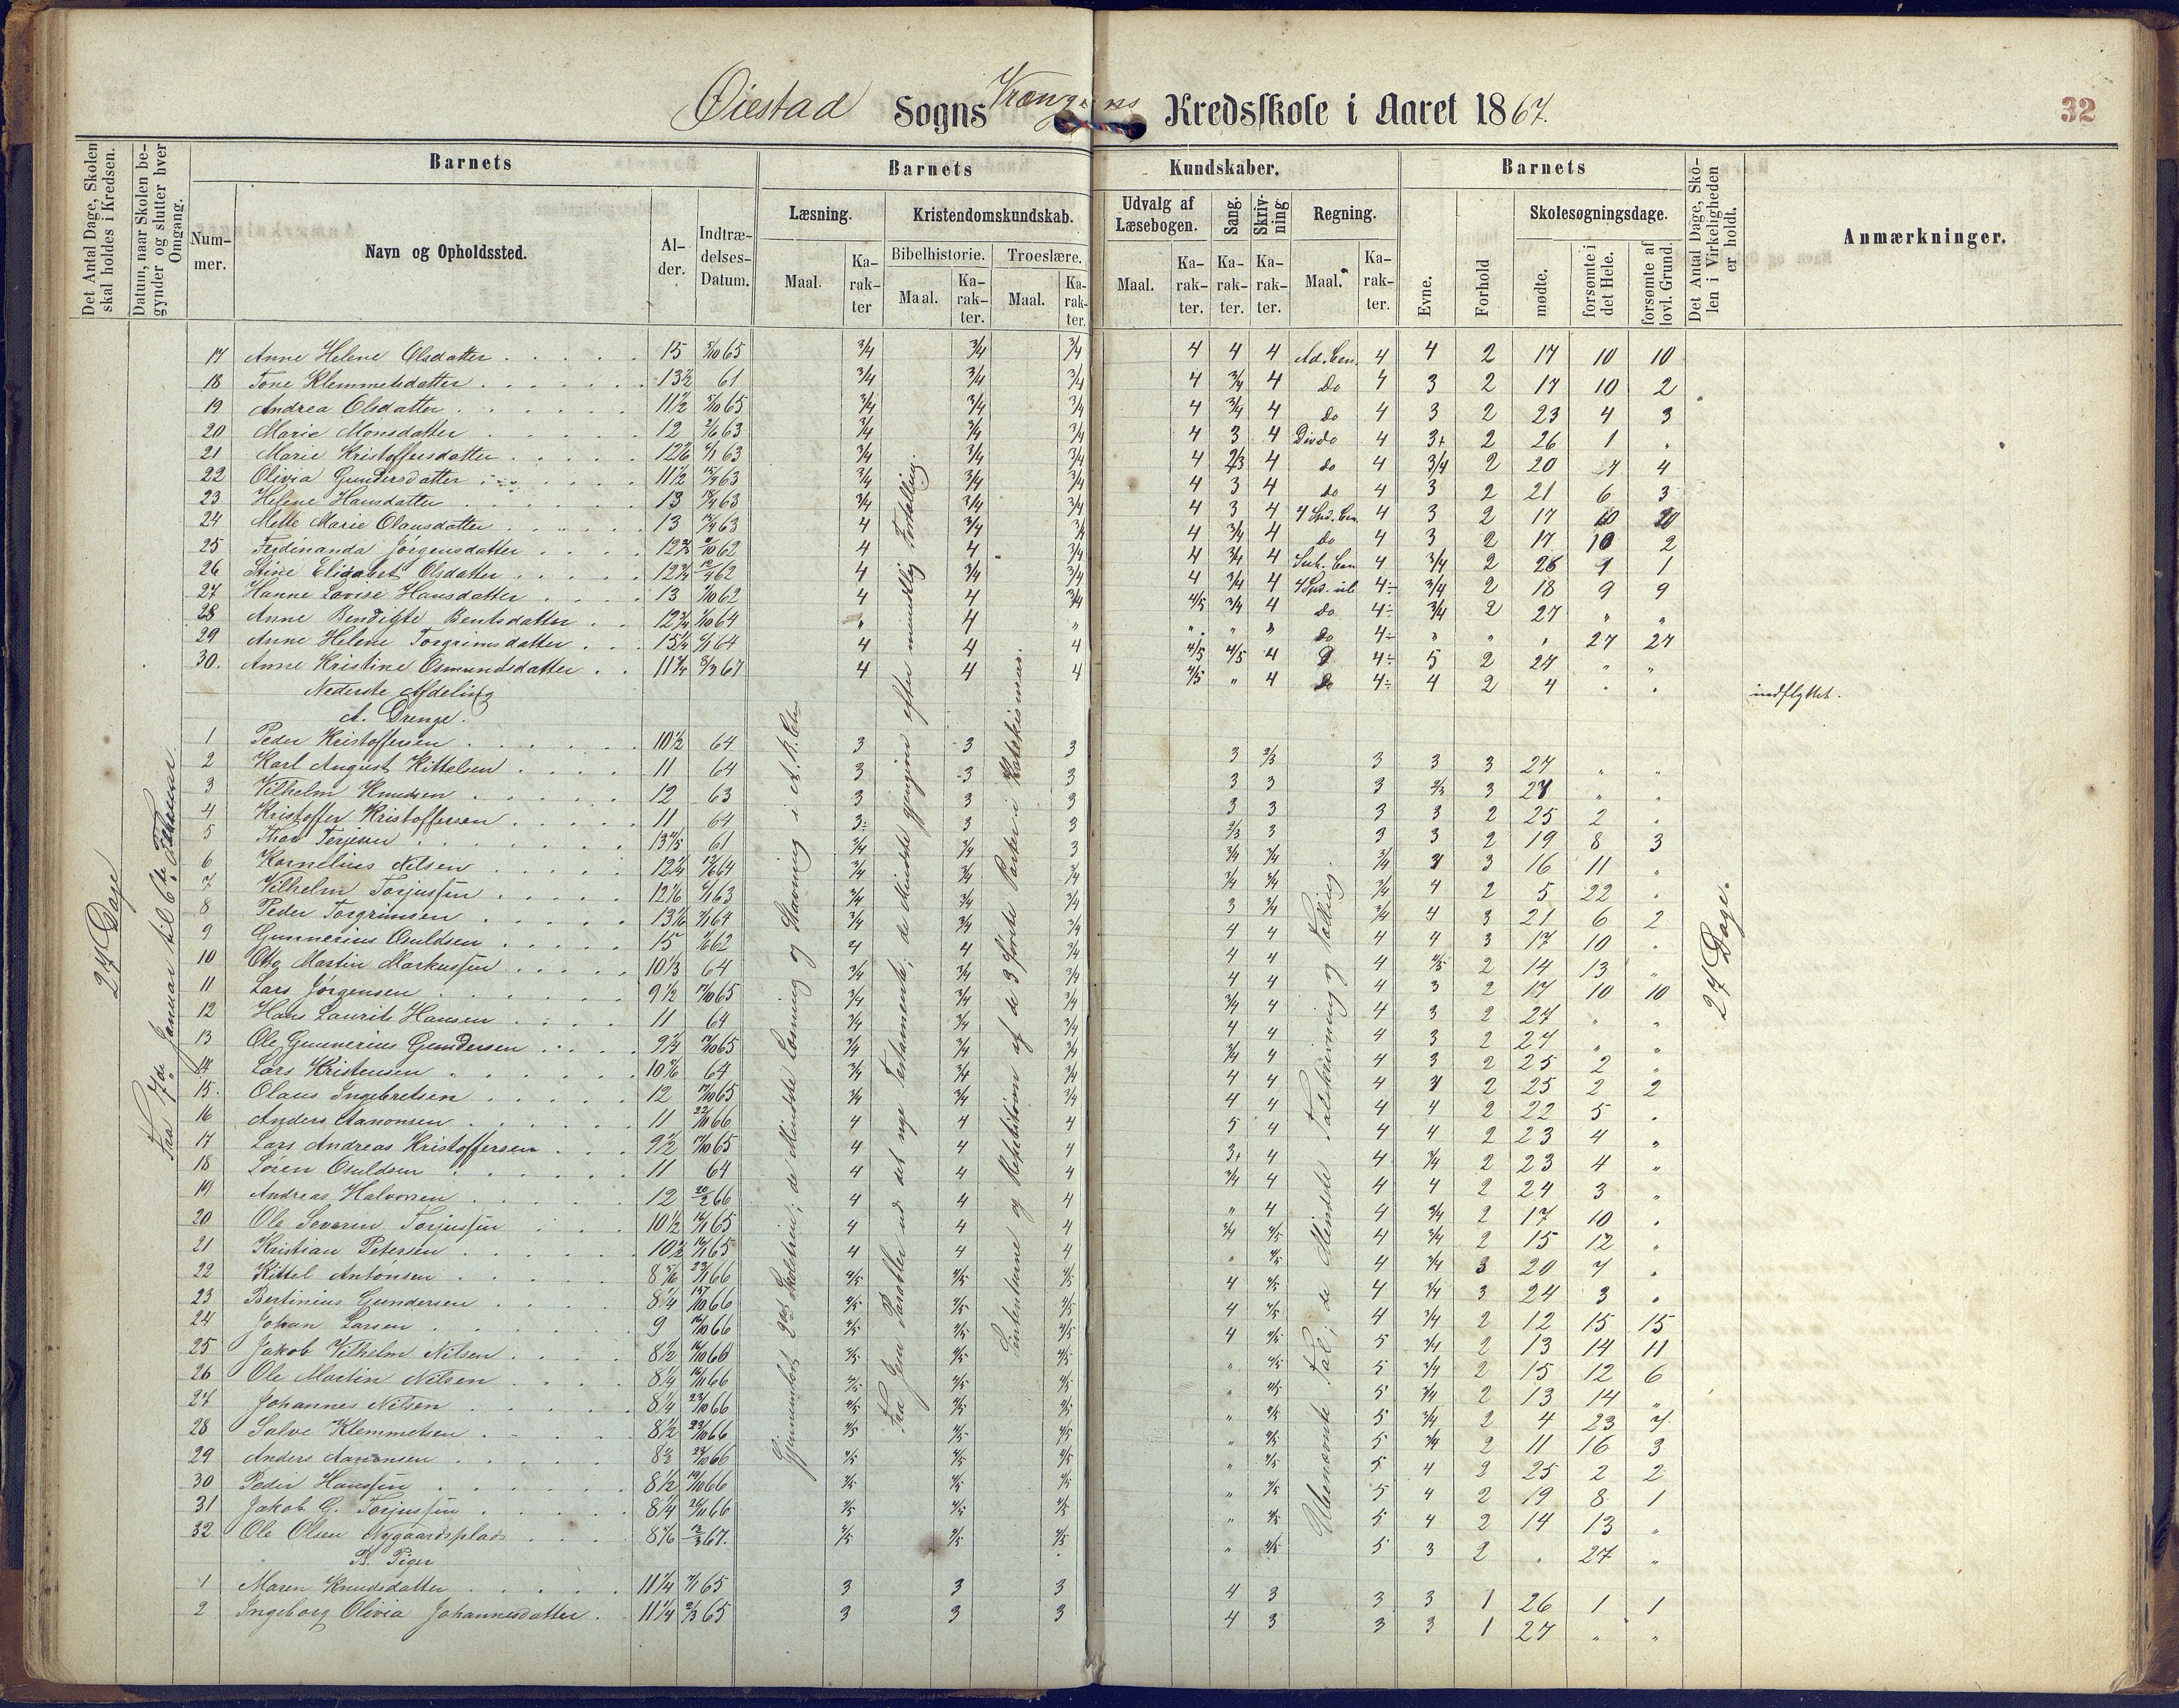 Øiestad Sogns Vrængens Kredsskole i Aaret 1867.
32
Det Antal Dage, Skolen skal holdes i Kredsen.
Datum, naar Skolen begynder og slutter hver Omgang.
Barnets
Nummer.
Navn og Opholdssted.
Alder.
Indtrædelses-Datum.
Barnets Kundskaber.
Læsning.
Maal.
Karakter
Kristendomskundskab.
Bibelhistorie.
Maal.
Karakter.
Troeslære.
Maal.
Karakter.
Udvalg af Læsebogen.
Maal.
Karakter.
Sang.
Karakter.
Skrivning
Karakter.
Regning.
Maal.
Karakter.
Barnets
Evne.
Forhold
Skolesøgningsdage.
mødte.
forsømte i det Hele.
forsømte af lovl. Grund.
Det Antal Dage, Skolen i Virkeligheden er holdt.
Anmærkninger.
27 Dage
Fra 7de Januar til 6te Februar.
17 Anne Helene Olsdatter 15 3/4 3/4 3/4 4 4 4 4 4 2 17 10 10
18 Tone Klemmetsdatter 13½ 61 3/4 3/4 3/4 4 3/4 4 do 4 3 2 17 10 2
19 Andrea Olsdatter 11½ 3/4 3/4 3/4 4 3/4 4 do 4 3 2 23 4 3
20 Marie Monsdatter 12 3/4 3/4 3/4 4 3 4 Div do 4 3+ 2 26 1
21 Marie Kristoffersdatter 3/4 3/4 3/4 4 2/3 4 do 4 3/4 2 20 4
22 Olivia Gundersdatter 11½ 3/4 3/4 3/4 4 3 4 do 4 3 2 21 6 3
23 Helene Hansdatter 13 3/4 3/4 3/4 4 3 4 4 3 2 17 10 10
24 Mette Marie Olausdatter 13 4 3/4 3/4 4 3/4 4 do 4 3 2 17 10 2
25 Ferdinanda Jørgensdatter 4 4 3/4 4 3/4 4 4 3/4 2 26 1 1
26 Stine Elisabet Olsdatter 4 3/4 3/4 4 3/4 4 3/4 2 18 9 9
27 Hanne Lovise Hansdatter 13 4 4 3/4 4/5 3/4 4 do 3/4 2 27 " "
28 Anne Bendigte Bentsdatter " 4 " " " " do " " " 27 27
29 Anne Helene Torgrimsdatter 4 4 4 4/5 4/5 4 5 2 27 " "
30. Anne Kristine Osmundsdatter 4 4 4 4/5 " 4 do 4 2 4 indflyttet.
Nederste Afdeling
A. Drenge.
1 Peder Kristoffersen 10½ 64 3 3 3 3 2/3 3 3 3 27 " "
2 Karl August Kittelsen 11 64 3 3 3 3 3 3 2/3 3 27 " "
3 Vilhelm Knudsen 12 63 3 3 3 3 3 3 3 2 25 2
4 Kristoffer Kristoffersen 11 64 3 3 3 2/3 3 3 3 2 19 8 3
5 Thor Terjesen 61 3/4 3/4 3 3/4 3/4 3/4 3 16 11
6 Kornelius Nilsen 3/4 3/4 3/4 3/4 3/4 3/4 4 2 5 22
7 Vilhelm Torjussen 3/4 3/4 3/4 3 3/4 3/4 4 3 21 6 2
8 Peder Torgrimsen 3/4 3/4 3/4 4 4 4 4 3 17 10
9 Gunnerius Osuldsen 15 4 4 3/4 4 4 4 4/5 2 14 13
10 Otto Martin Markussen 10⅓ 64 3/4 3/4 3/4 4 4 4 3 2 17 10 10
11 Lars Jørgensen 9½ 3/4 3/4 3/4 3/4 4 4 3 2 27 " "
12 Hans Laurits Hansen 11 64 3/4 3/4 3/4 4 4 4 3 2 27 " "
13 Ole Gunnerius Gundersen 3/4 3/4 3/4 3/4 4 4 3 2 25 2
14 Lars Kristensen 64 3/4 3/4 3/4 4 4 4 2 25 2 2
15. Olaus Ingebretsen 12 3/4 3/4 3/4 4 4 4 4 2 22 5
16 Anders Aanonsen 11 22/10 66 4 4 4 5 4 4 4 2 23 4 "
17 Lars Andreas Kristoffersen 9½ 4 4 4 3+ 4 4 3/4 2 23 4 "
18 Søren Osuldsen 11 64 4 4 4 3/4 4 4 4 2 24 3 "
19 Andreas Halvorsen 12 20/2 66 4 4 4 " 4 4 3/4 2 17 10
20 Ole Severin Torjussen 10½ 4 4 4 3/4 4/5 4 3/4 2 15 12
21 Kristian Petersen 10½ 4 4 4 " 4/5 4 3/4 3 20 7
22 Kittel Antonsen 4/5 4/5 4/5 4 4/5 4 3/4 3 24 3
23 Bertinius Gundersen 8¼ 4/5 4/5 4/5 4 4/5 4 3/4 2 12 15 15
24 Johan Larsen 9 4/5 4/5 4/5 4 4/5 5 3/4 2 13 14 11
25 Jakob Vilhelm Nilsen 8½ 4/5 4/5 4/5 " 4/5 5 3/4 2 15 12 6
26 Ole Martin Nilsen 8¼ 4/5 4/5 4/5 " 4/5 5 3/4 2 13 14 "
27 Johannes Nilsen 8¼ 23/10 66 4/5 4/5 4/5 " 4/5 5 3/4 2 4 23 7
28 Salve Klemmetsen 8½ 23/10 66 4/5 4/5 4/5 " 4/5 5 3/4 2 11 16 3
29 Anders Aanonsen 23/10 66 4/5 4/5 4/5 " 4/5 5 4 2 25 2 2
30 Peder Hanssen 8½ 4/5 4/5 4/5 " 4/5 5 4 2 19 8 1
31 Jakob G. Torjussen 8¼ 4/5 4/5 4/5 " 4/5 5 4 2 14 13 "
32 Ole Olsen Nygaardsplads 4/5 4/5 4/5 " 4/5 5 3 2 27 "
B. Piger
1 Maren Knudsdatter 11¼ 3 3 3 4 3 3 3 1 26 1 1
2 Ingeborg Olivia Johannesdatter 11¼ 3 3 3 4 3 3 3 1 27 " "
Gjennemløb 2det Skoletrin; de Mindste Læsning og Stavning i A. B. C.
Fra Jesu Parabler ud det nye Testamente; de Mindste gjengiven efter mundtlig Fortælling.
Sententserne og Repetition af de 3 første Parter i Katekismus.
Ubenævnte Tal; de Mindste Talskrivning og Tælling.
27 Dage.